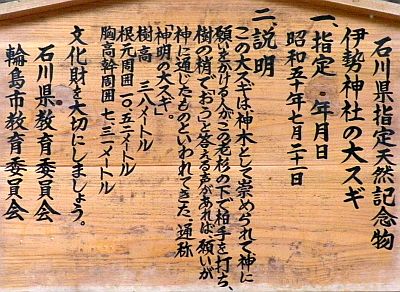 石川県指定天然記念物
伊勢神社の大スギ
一、指定 年月日
昭和五十年七月二十一日
二、説明
この大スギは神木として崇められて神に
願いをかける人がこの老杉の下で柏手を打ち、
樹の梢で「おっ」と答えるときがあれば、願いが
神に通じたものといわれてきた。通称
「神明の大スギ」。
樹高 三八メートル
根元周囲一〇.五二メートル
胸高幹周囲 七.三一メートル
文化財を大切にしましょう。
石川県教育委員会
輪島市教育委員会